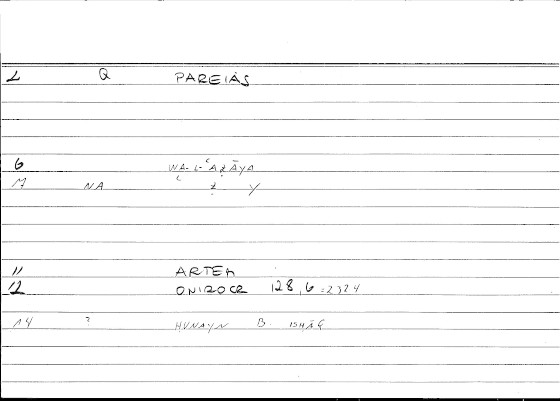 L Q PAREIÀS
6 WA-L-ʿAẒĀYA
M NA Ẓ Y
11 ARTEM
12 ONIROCR 128,6 = 2324
14 ? HUNAYN B. ISHĀQ